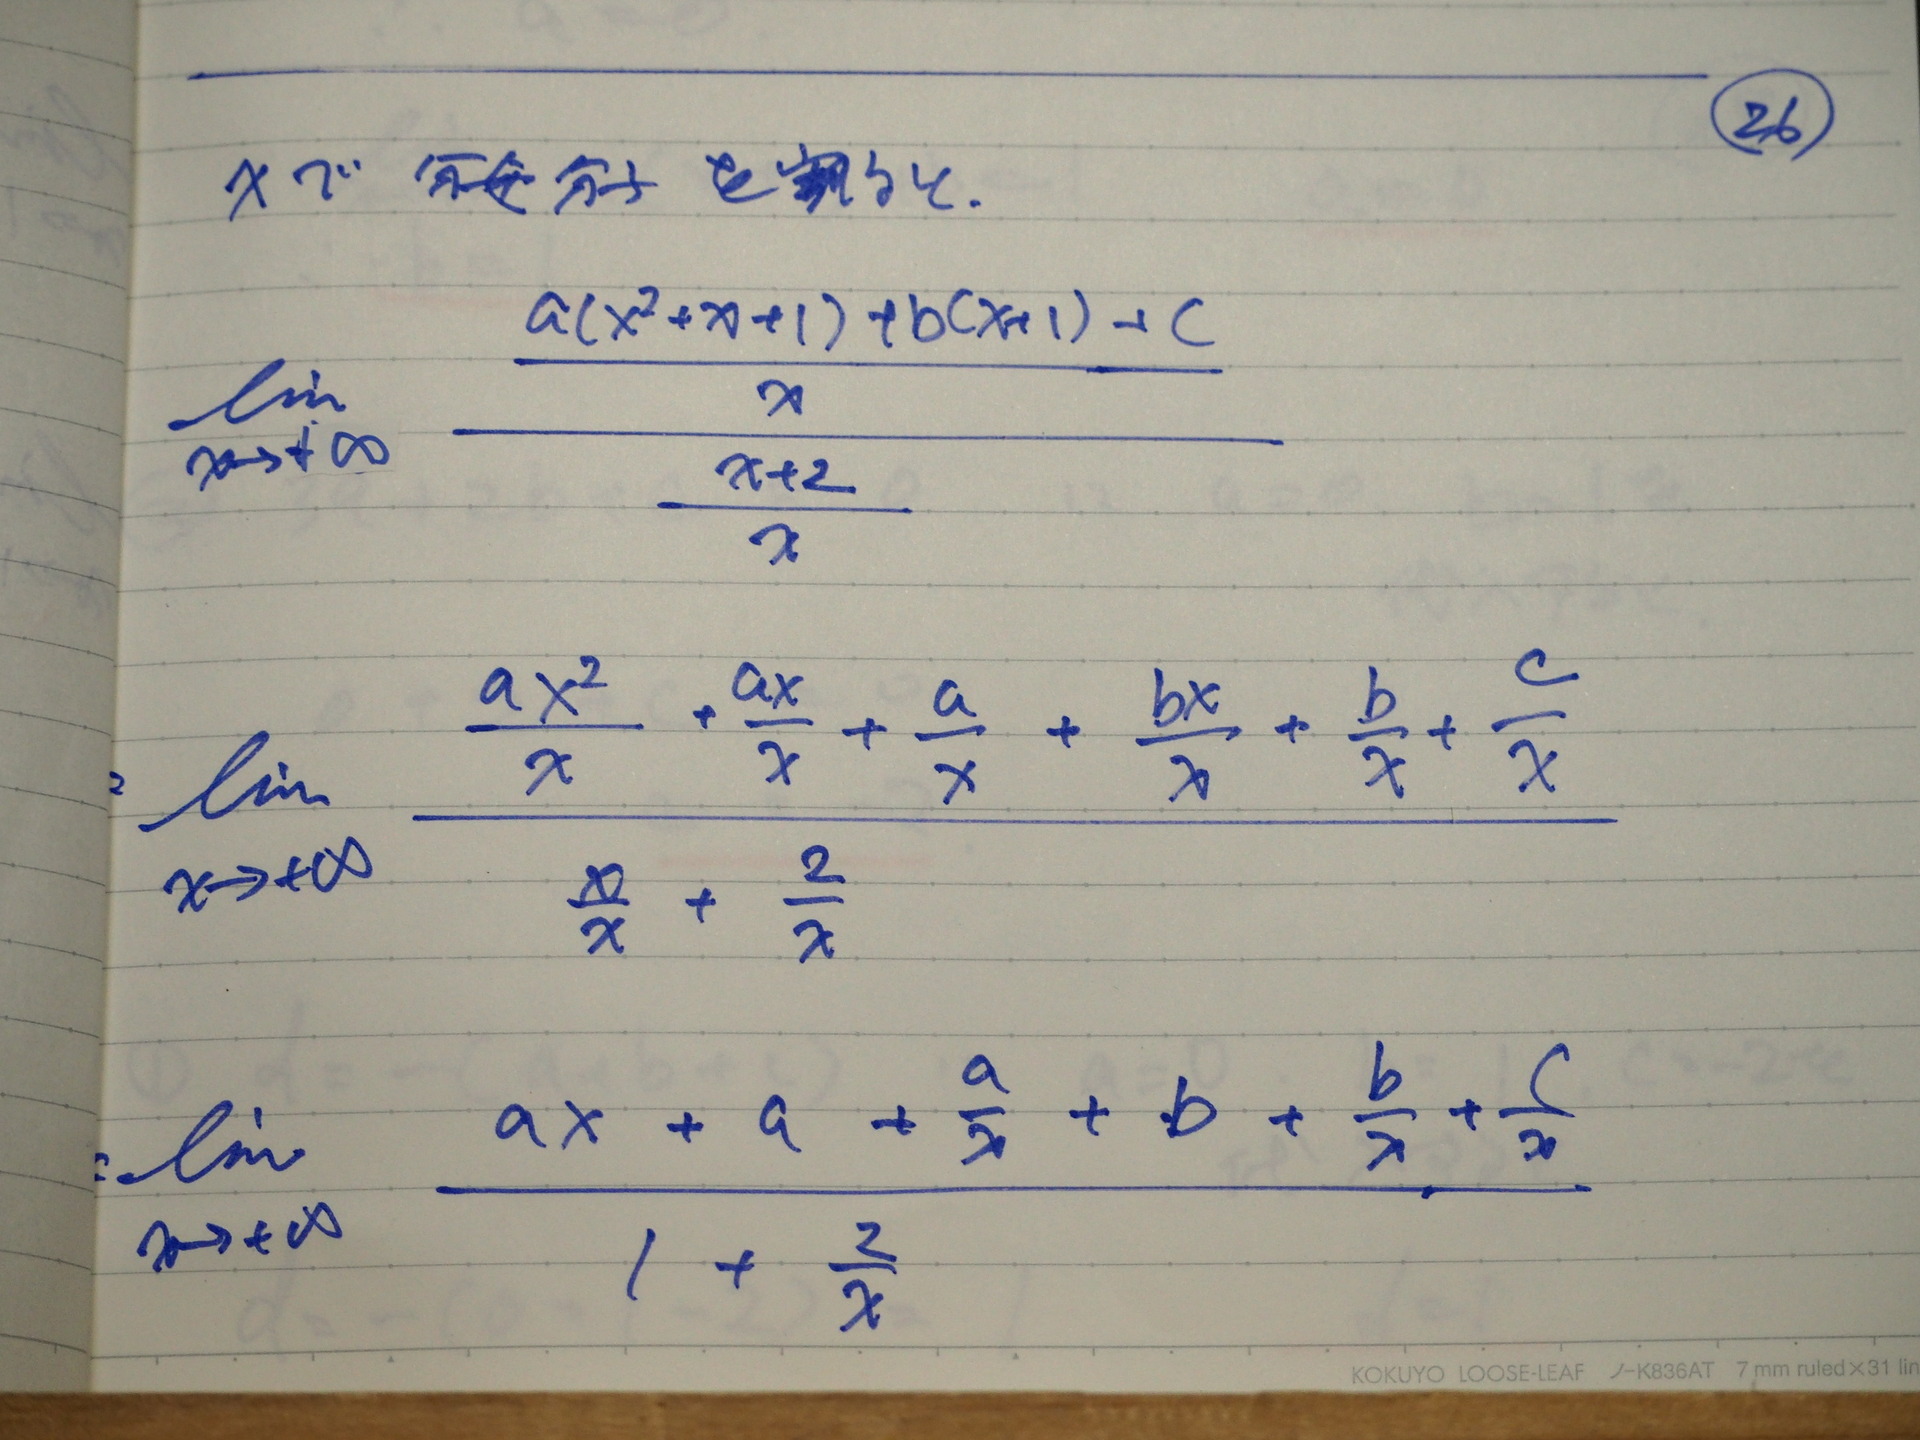 26
xで 分母分子を割ると.
lim x→+∞ (a(x²+x+1)+b(x+1)+c)/x / (x+2)/x
= lim x→+∞ (ax²/x + ax/x + a/x + bx/x + b/x + c/x) / (x/x + 2/x)
= lim x→+∞ (ax + a + a/x + b + b/x + c/x) / (1 + 2/x)
KOKUYO LOOSE-LEAF ノ-K836AT 7 mm ruled×31 lin